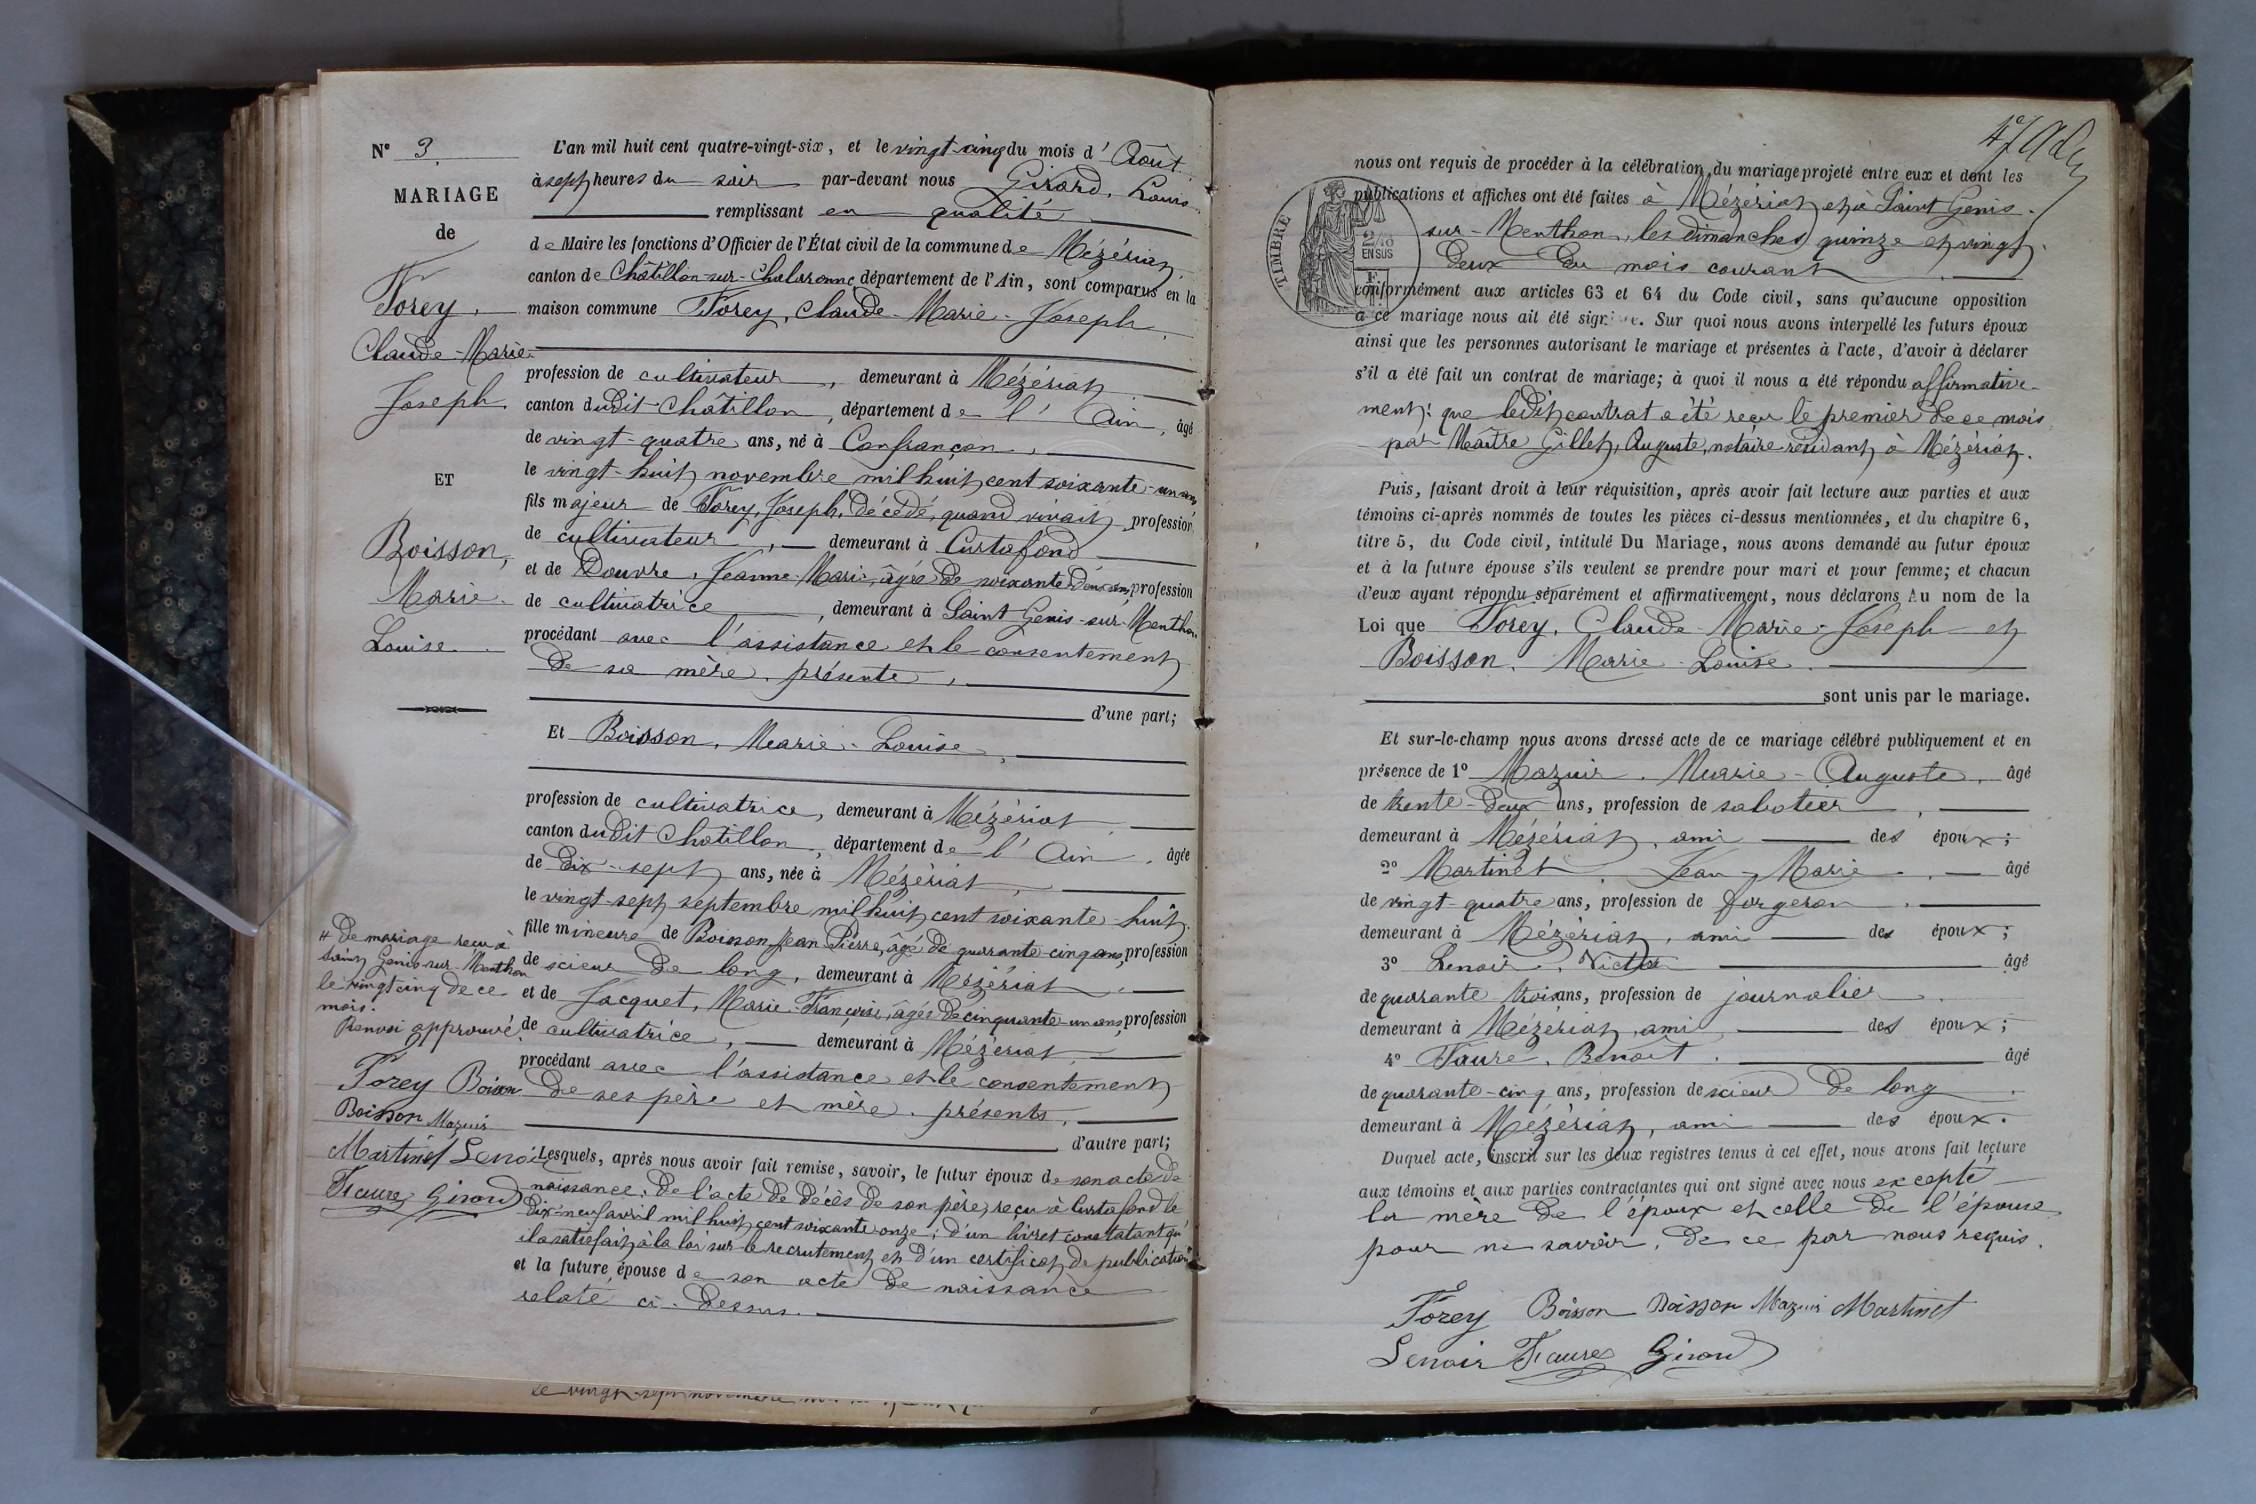 N° 3.
MARIAGE
de
Forey,
Claude-Marie-
Joseph
ET
Boisson,
Marie-
Louise.
L'an mil huit cent quatre-vingt-six, et le vingt-cinq du mois d'Août
à sept heures du soir par-devant nous Girard, Louis
remplissant en qualité
de Maire les fonctions d'Officier de l'État civil de la commune de Mézériat,
canton de Châtillon-sur-Chalaronne, département de l'Ain, sont comparus en la
maison commune Forey, Claude-Marie-Joseph,
profession de cultivateur, demeurant à Mézériat,
canton dudit Châtillon, département de l'Ain, âgé
de vingt-quatre ans, né à Confrançon,
le vingt-huit novembre mil huit cent soixante-un
fils majeur de Forey, Joseph, décédé, quand vivait profession
de cultivateur, demeurant à Curtafond
et de Douvre, Jeanne-Marie, âgée de soixante-deux ans, profession
de cultivatrice, demeurant à Saint Genis-sur-Menthon
procédant avec l'assistance et le consentement
de sa mère, présente,
d'une part;
Et Boisson, Marie-Louise,
profession de cultivatrice, demeurant à Mézériat,
canton dudit Châtillon, département de l'Ain, âgée
de dix-sept ans, née à Mézériat,
le vingt-sept septembre mil huit cent soixante-huit,
fille mineure de Boisson, Jean Pierre, âgé de quarante-cinq ans, profession
de scieur de long, demeurant à Mézériat,
et de Jacquet, Marie-Françoise, âgée de cinquante-un ans, profession
de cultivatrice, demeurant à Mézériat,
procédant avec l'assistance et le consentement
de ses père et mère, présents,
d'autre part;
Lesquels, après nous avoir fait remise, savoir, le futur époux de son acte de
naissance; de l'acte de décès de son père, reçu à Curtafond le
dix-neuf avril mil huit cent soixante onze; d'un livret constatant qu'
il a satisfait à la loi sur le recrutement et d'un certificat de publication #
et la future épouse de son acte de naissance
relaté ci-dessus.
# de mariage reçu à
Saint Genis-sur-Menthon
le vingt cinq de ce
mois.
Renvoi approuvé
Forey Boisson
Boisson Mazuir
Martinet Lenoir
Faure Girard
le vingt-sept novembre
47
nous ont requis de procéder à la célébration du mariage projeté entre eux et dont les
publications et affiches ont été faites à Mézériat et à Saint Genis-
sur-Menthon, les dimanches quinze et vingt-
deux du mois courant
TIMBRE
2/10
EN SUS
conformément aux articles 63 et 64 du Code civil, sans qu'aucune opposition
à ce mariage nous ait été signifiée. Sur quoi nous avons interpellé les futurs époux
ainsi que les personnes autorisant le mariage et présentes à l'acte, d'avoir à déclarer
s'il a été fait un contrat de mariage; à quoi il nous a été répondu affirmative-
ment; que ledit contrat a été reçu le premier de ce mois,
par Maître Gillet, Auguste, notaire résidant à Mézériat.
Puis, faisant droit à leur réquisition, après avoir fait lecture aux parties et aux
témoins ci-après nommés de toutes les pièces ci-dessus mentionnées, et du chapitre 6,
titre 5, du Code civil, intitulé Du Mariage, nous avons demandé au futur époux
et à la future épouse s'ils veulent se prendre pour mari et pour femme; et chacun
d'eux ayant répondu séparément et affirmativement, nous déclarons Au nom de la
Loi que Forey, Claude-Marie-Joseph et
Boisson, Marie-Louise.
sont unis par le mariage.
Et sur-le-champ nous avons dressé acte de ce mariage célébré publiquement et en
présence de 1° Mazuir, Marie-Auguste, âgé
de trente-deux ans, profession de sabotier,
demeurant à Mézériat, ami des époux;
2° Martinet, Jean-Marie, âgé
de vingt-quatre ans, profession de forgeron,
demeurant à Mézériat, ami des époux;
3° Lenoir, Victor âgé
de quarante-trois ans, profession de journalier
demeurant à Mézériat, ami des époux;
4° Faure, Benoît. âgé
de quarante-cinq ans, profession de scieur de long
demeurant à Mézériat, ami des époux.
Duquel acte, inscrit sur les deux registres tenus à cet effet, nous avons fait lecture
aux témoins et aux parties contractantes qui ont signé avec nous excepté
la mère de l'époux et celle de l'épouse
pour ne savoir, de ce par nous requis.
Forey Boisson Boisson Mazuir Martinet
Lenoir Faure Girard